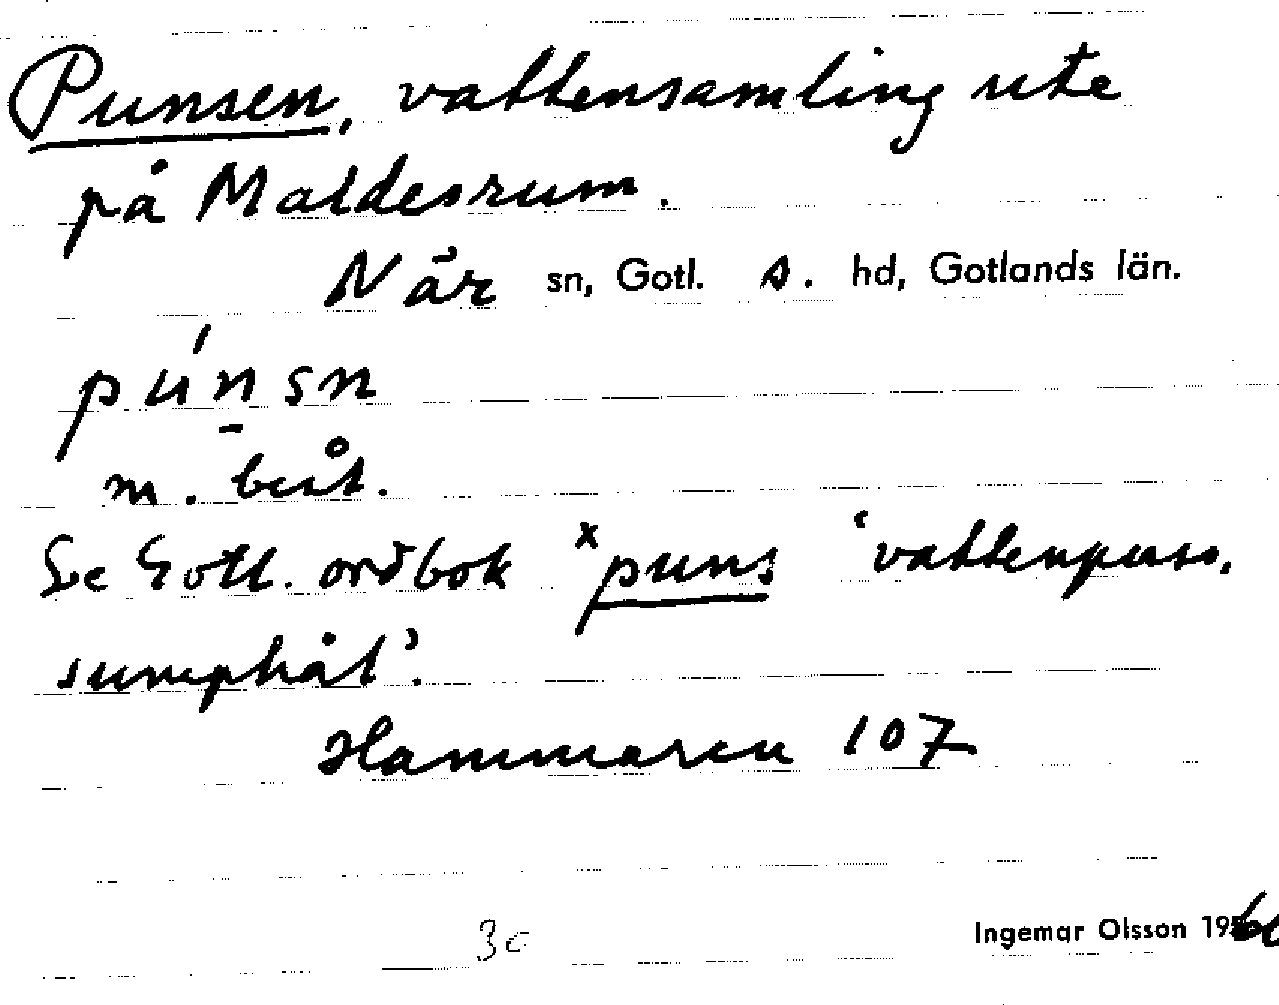 Punsen, vattensamling ute
på Maldesrum.
När sn, Gotl. s. hd, Gotlands län.
pú́nsn
m. best.
Se Gotl. ordbok ˣpuns 'vattenpuss,
sumphål'.
Hammaren 107
30
Ingemar Olsson 19